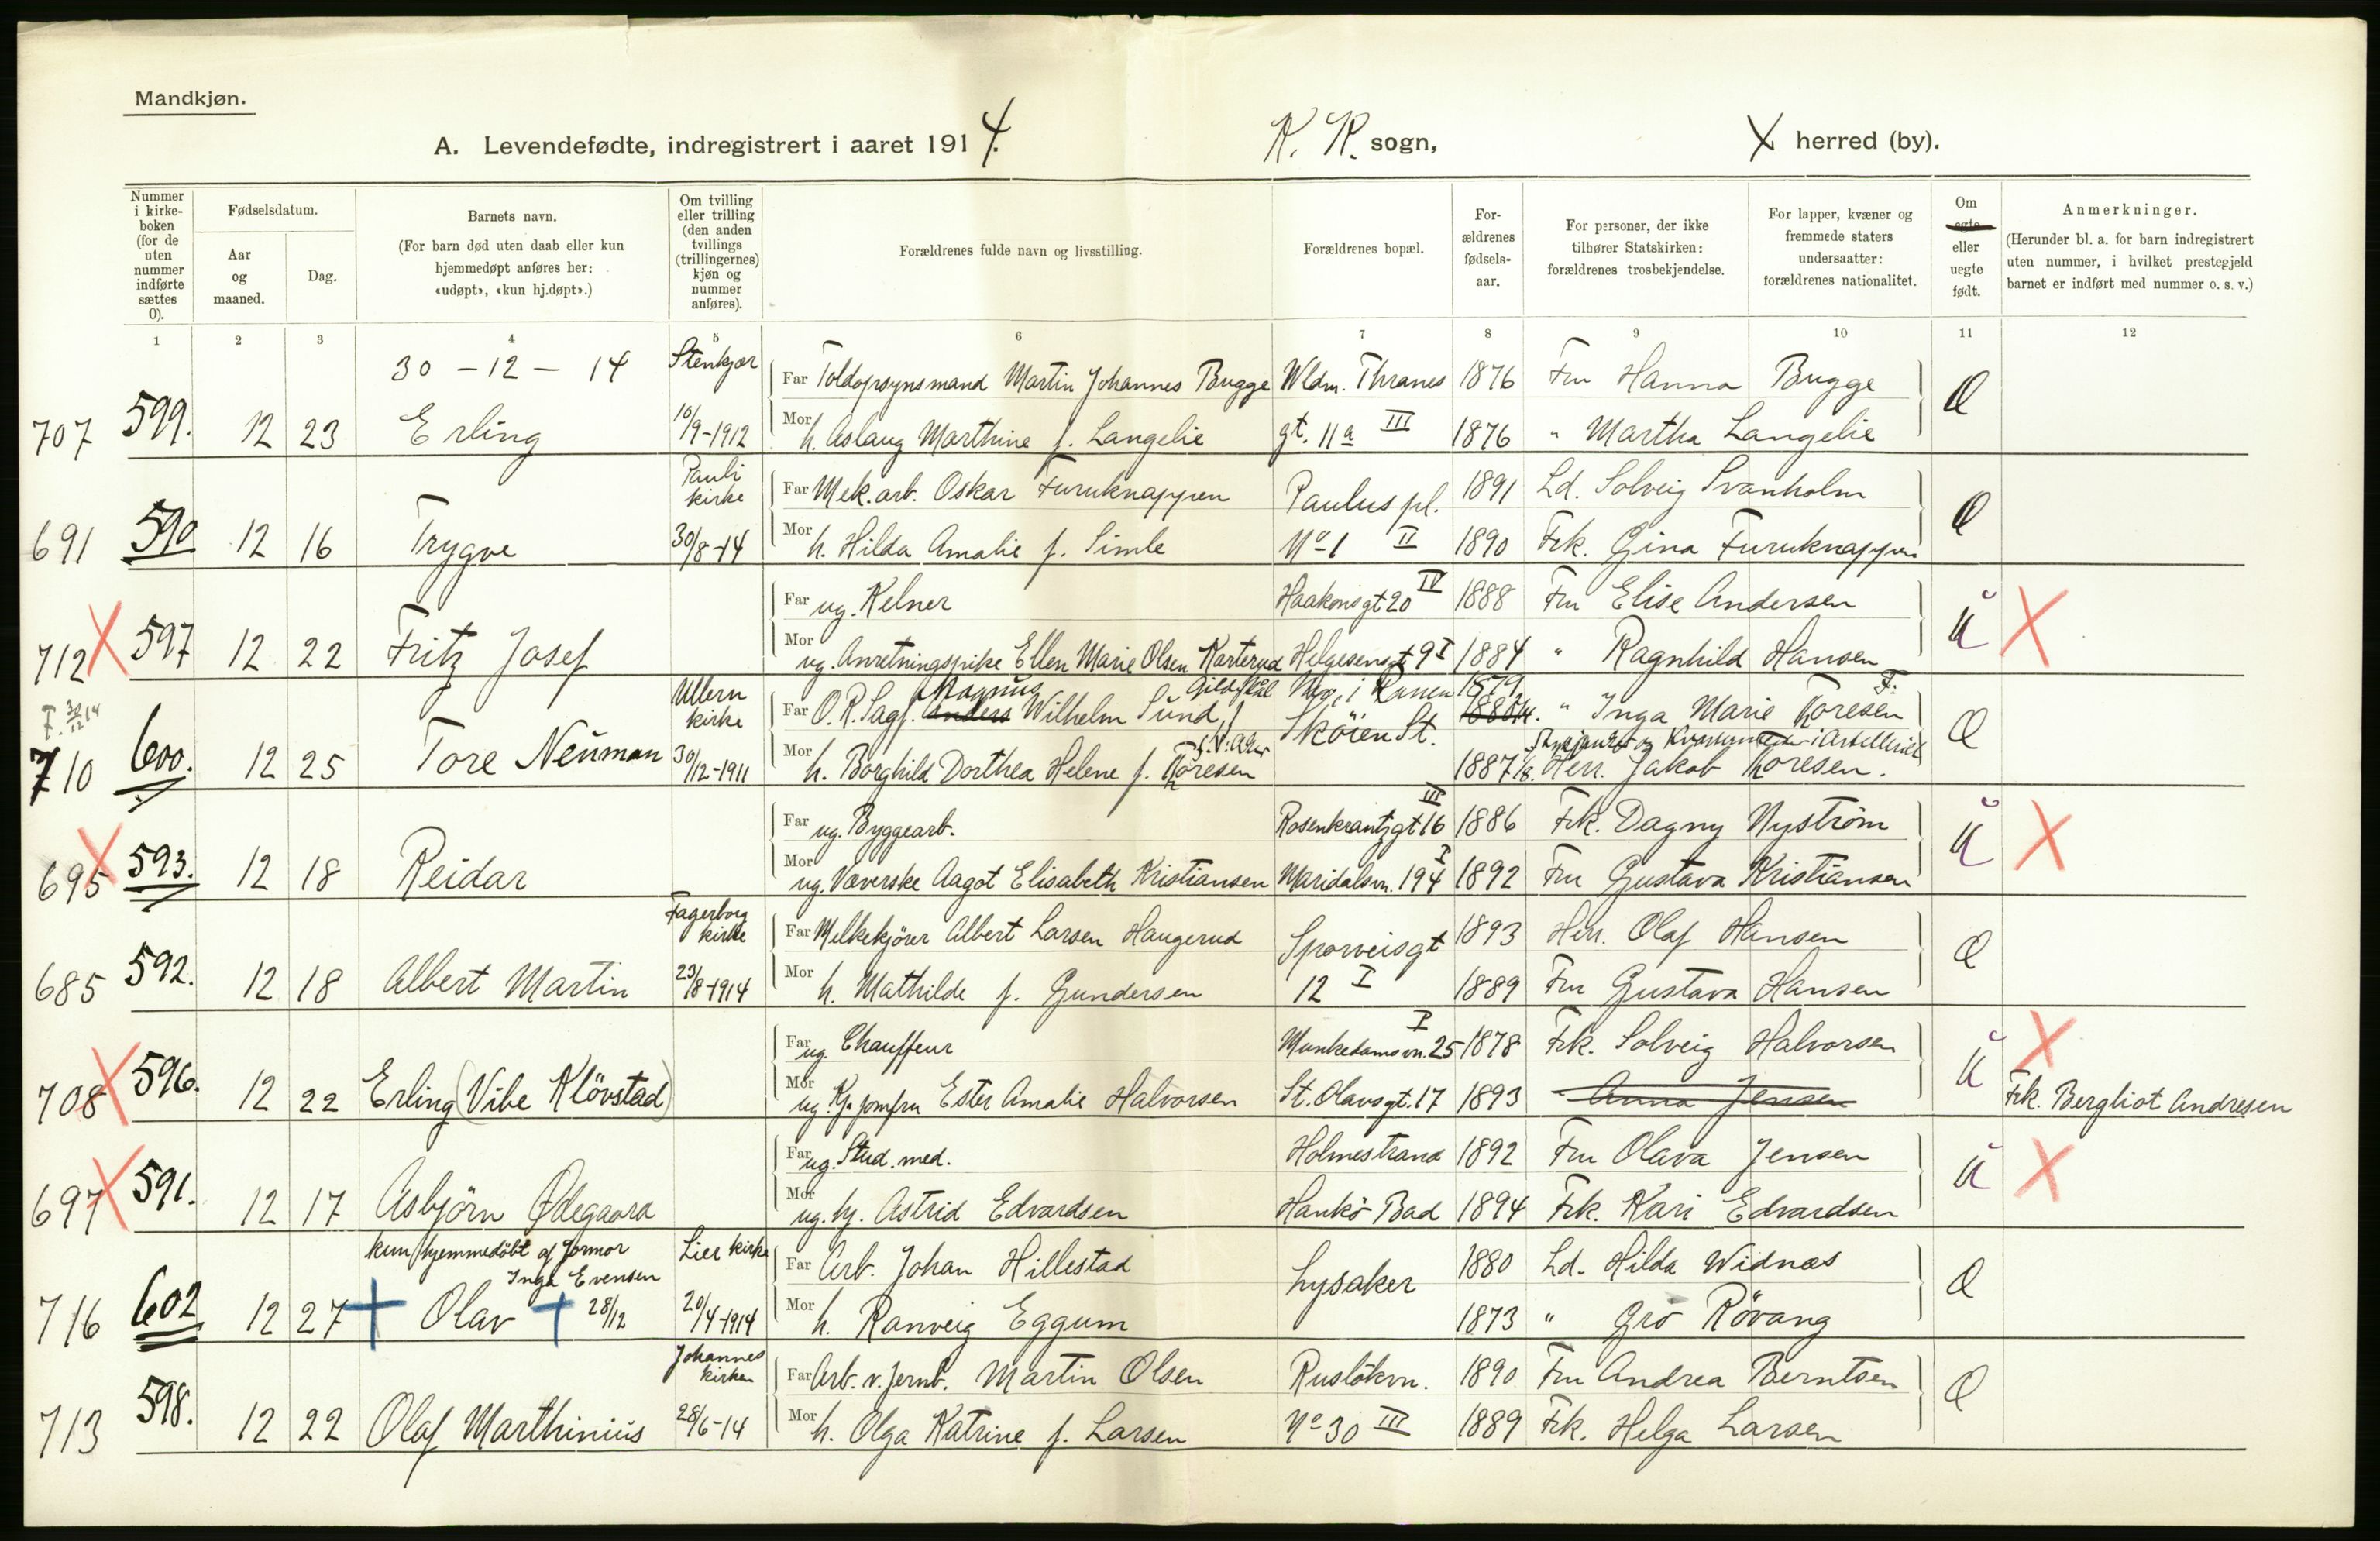 Mandkjøn.
A. Levendefødte, indregistrert i aaret 1914. K. K. sogn, X herred (by).
Nummer i kirke-boken (for de uten nummer indførte sættes 0).
Fødselsdatum.
Aar og maaned.
Dag.
Barnets navn.
(For barn død uten daab eller kun hjemmedøpt anføres her: «udøpt», «kun hj.døpt».)
Om tvilling eller trilling (den anden tvillings (trillingernes) kjøn og nummer anføres).
Forældrenes fulde navn og livsstilling.
Forældrenes bopæl.
For-ældrenes fødsels-aar.
For personer, der ikke tilhører Statskirken: forældrenes trosbekjendelse.
For lapper, kvæner og fremmede staters undersaatter: forældrenes nationalitet.
Om egte eller uegte født.
Anmerkninger.
(Herunder bl. a. for barn indregistrert uten nummer, i hvilket prestegjeld barnet er indført med nummer o. s. v.)
1 2 3 4 5 6 7 8 9 10 11 12
30 - 12 - 14 Stenkjær Far Toldopsynsmand Martin Johannes Bugge Wldm. Thranes 1876 Fru Hanna Bugge
707 599. 12 23 Erling 10/9-1912 Mor h. Aslaug Marthine f. Langelie gt. 11a III 1876 " Martha Langelie
Pauli kirke Far Mek. arb. Oskar Furuknappen Paulus pl. 1891 Ld. Solveig Svanholm
691 590 12 16 Trygve 30/8-14 Mor h. Hilda Amalie f. Simle No 1 II 1890 Frk. Gina Furuknappen
Far ug. Kelner Haakonsgt 20 IV 1888 Fru Elise Andersen
712 X 597 12 22 Fritz Josef Mor ug. Anretningspike Ellen Marie Olsen Karterud Helgesensgt 9 I 1884 " Ragnhild Hansen Ü X
Ullern kirke Far O. R. Sagf. Anders Magnus Wilhelm Sund, Gildeskål Skøien St. " Inga Marie Thoresen
710 600. 12 25 Tore Neuman 30/12-1911 Mor h. Borghild Dorthea Helene f. Thoresen 1887 Herr. Jakob Thoresen.
Far ug. Byggearb. Rosenkrantzgt 16 III 1886 Frk. Dagny Nyström
695 X 593. 12 18 Reidar Mor ug. Væverske Aagot Elisabeth Kristiansen Maridalsvn. 194 I 1892 Fru Gustava Kristiansen Ü X
Fagerborg kirke Far Melkekjører Albert Larsen Haugerud Sporveisgt 1893 Herr. Olaf Hansen
685 592. 12 18 Albert Martin 23/8-1914 Mor h. Mathilde f. Gundersen 12 I 1889 Fru Gustava Hansen
Far ug. Chauffeur Munkedamsvn. 25 I 1878 Frk. Solveig Halvorsen X
708 X 596. 12 22 Erling (Vibe Klövstad) Mor ug. Kj. jomfru Ester Amalie Halvorsen St. Olavsgt. 17 1893 Anna Jensen Ü Frk. Bergliot Andresen
Far ug. Stud. med. Holmestrand 1892 Fru Olava Jensen
697 X 591. 12 17 Asbjörn Ødegaard Mor ug. hj. Astrid Edvardsen Hankø Bad 1894 Frk. Kari Edvardsen Ü X
kun hjemmedöbt af Jormor Inga Evensen Lier kirke Far Arb. Johan Hillestad Lysaker 1880 Ld. Hilda Widnæs
716 602 12 27 + Olav + 28/12 20/4-1914 Mor h. Ranveig Eggum 1873 " Gro Rövang
Johannes kirken Far Arb. v. Jernb. Martin Olsen Ruslökvn. 1890 Fru Andrea Berntsen
713 598. 12 22 Olaf Marthinius 28/6-14 Mor h. Olga Katrine f. Larsen No 30 III 1889 Frk. Helga Larsen